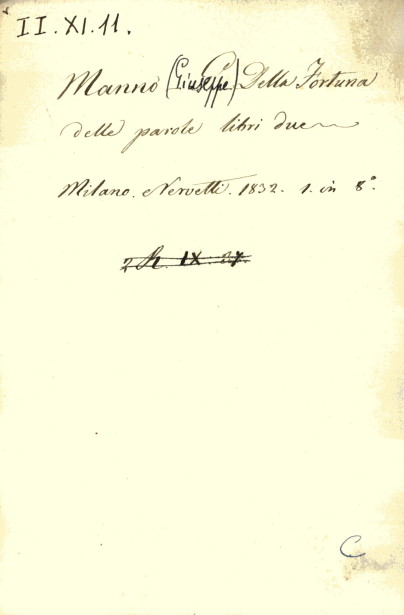 II. XI. 11.
Manno (Giuseppe) Della Fortuna
delle parole libri due
Milano. Nervetti. 1832. 1. in 8°.
IX
C